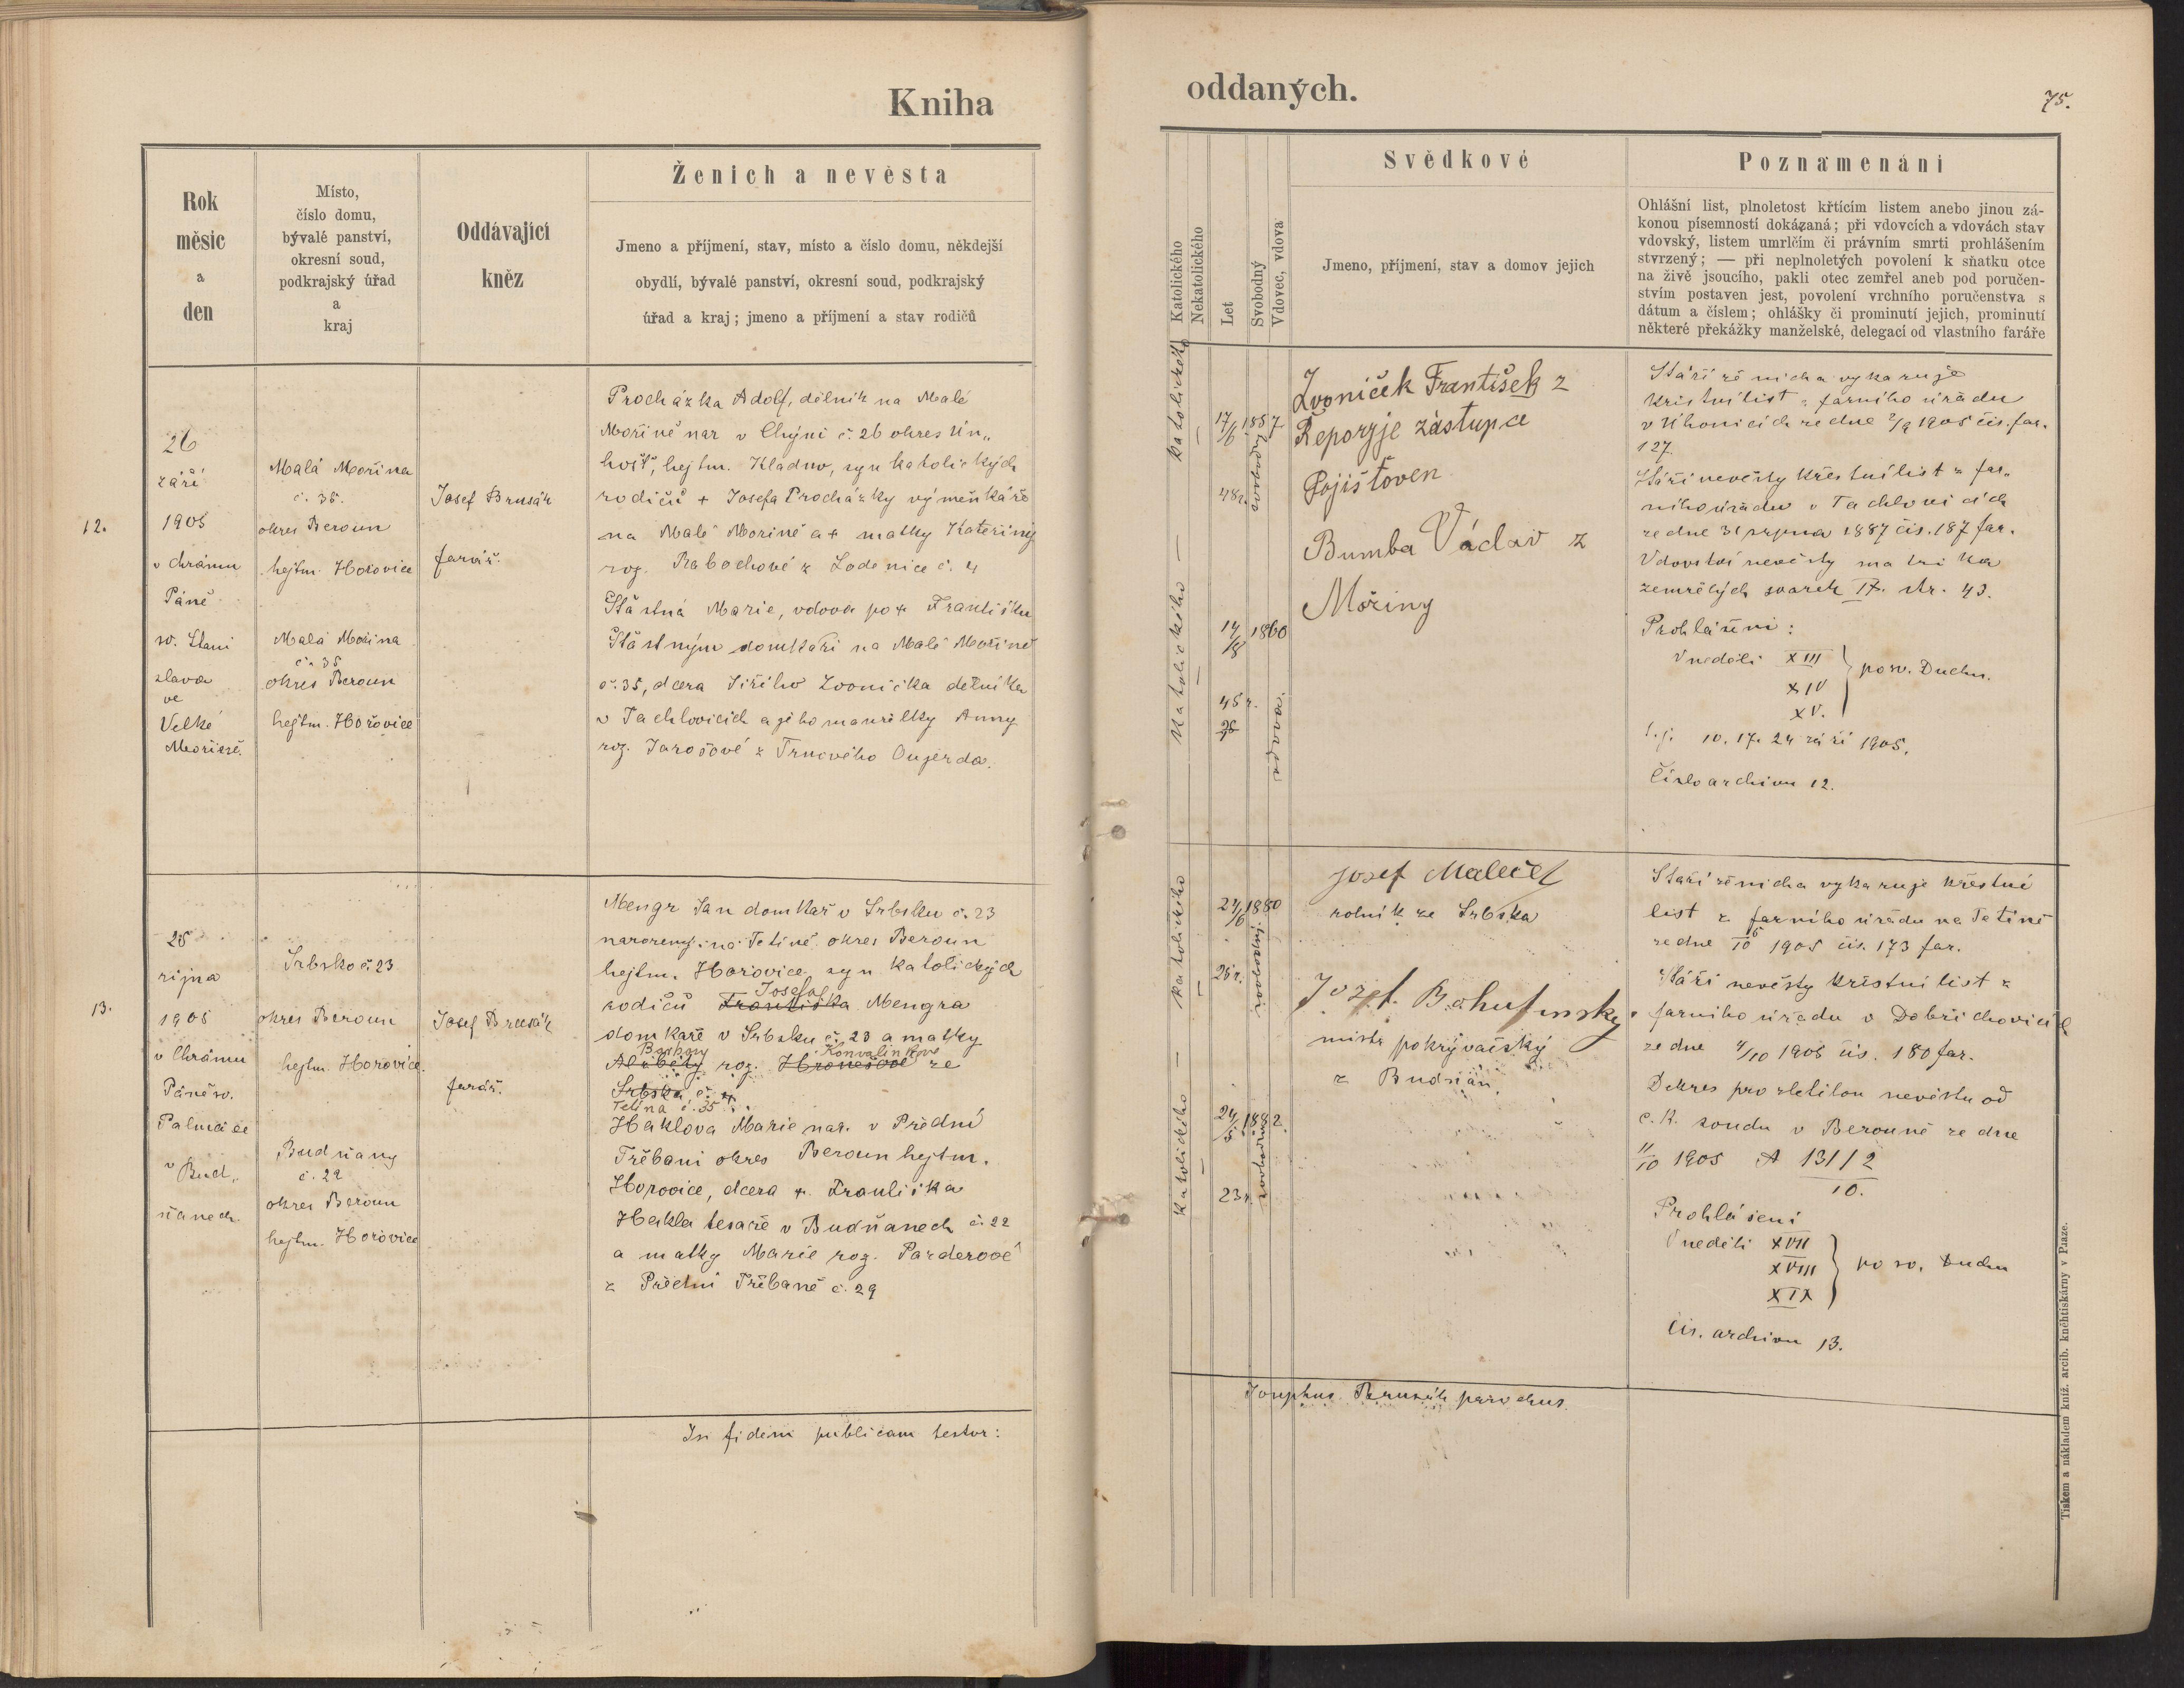 Kniha
Rok
měsíc
a
den
Místo,
číslo domu,
bývalé panství,
okresní soud,
podkrajský úřad
a
kraj
Oddávající
kněz
Ženich a nevěsta
Jmeno a příjmení, stav, místo a číslo domu, někdejší
obydlí, bývalé panství, okresní soud, podkrajský
úřad a kraj; jmeno a příjmení a stav rodičů
12.
26
září
1905
v chrámu
Páně
sv. Stani
slava
ve
Velké
Mořině.
Malá Mořina
č. 35.
okres Beroun
hejtm. Hořovice
Malá Mořina
č. 35
okres Beroun
hejtm. Hořovice
Josef Brusák
farář.
Procházka Adolf, dělník na Malé
Mořině nar v Chýni č. 26 okres Un„
hošť, hejtm. Kladno, syn katolických
rodičů + Josefa Procházky výměnkáře
na Malé Mořině a + matky Kateřiny
roz. Rabochové z Loděnice č. 4
Šťastná Marie, vdova po + Františku
Šťastným domkáři na Malé Mořině
č. 35, dcera Jiřího Zvoníčka dělníka
v Tachlovicích a jeho manželky Anny
roz. Jarošové z Trnového Oujezda.
13.
25
října
1905
v Chrámu
Páně sv.
Palmácie
v Bud„
ňanech
Srbsko č. 23
okres Beroun
hejtm. Hořovice.
Budňany
č. 22
okres Beroun
hejtm. Hořovice
Josef Brusák
farář.
Mengr Jan domkář v Srbsku č. 23
narozený na Tetíně okres Beroun
hejtm. Hořovice, syn katolických
Josefa
rodičů Františka Mengra
domkáře v Srbsku č. 23 a matky
Barbory Konvalinkové
Alžběty roz. Hronešové ze
Srbska č.
Tetína č. 35
Haklova Marie nar. v Přední
Třebani okres Beroun hejtm.
Hořovice, dcera +. Františka
Hakla tesaře v Budňanech č. 22
a matky Marie roz. Parderové
z Přední Třebaně č. 29
In fidem publicam testor:
oddaných.
75.
Katolického
Nekatolického
Let
Svobodný
Vdovec, vdova
Svědkové
Jmeno, příjmení, stav a domov jejich
Poznamenání
Ohlášní list, plnoletost křtícím listem anebo jinou zá-
konou písemností dokázaná; při vdovcích a vdovách stav
vdovský, listem umrlčím či právním smrti prohlášením
stvrzený; — při neplnoletých povolení k sňatku otce
na živě jsoucího, pakli otec zemřel aneb pod poručen-
stvím postaven jest, povolení vrchního poručenstva s
dátum a číslem; ohlášky či prominutí jejich, prominutí
některé překážky manželské, delegací od vlastního faráře
katolického
17/6 1857
48r.
svobodný
katolického
14/8 1860
45 r.
vdova.
Zvoníček František z
Řeporyje zástupce
Pojišťoven
Bumba Václav z
Mořiny
Stáří ženicha vykazuje
křestní list z farního úřadu
v Úhonicích ze dne 2/9 1905 čís. far.
127.
Stáří nevěsty křestní list z far„
ního úřadu v Tachlovicích
ze dne 31 srpna 1887 čís. 187 far.
Vdovství nevěsty matrika
zemřelých svazek IV. str. 43.
Prohlášení:
V neděli XIII
XIV
XV.
po sv. Duchu.
t. j. 10. 17. 24 září 1905.
Číslo archivu 12.
katolického
24/6 1880
25 r.
svobodný.
katolického
24/5 1882.
23 r.
svobodná
Josef Maleček
rolník ze Srbska
Josef Bohutinský
mistr pokrývačský
z Budňan
Stáří ženicha vykazuje křestní
list z farního úřadu na Tetíně
ze dne 6/10 1905 čís. 173 far.
Stáří nevěsty křestní list z
farního úřadu v Dobřichovicích
ze dne 4/10 1905 čís. 180 far.
Dekres pro zletilou nevěstu od
c. k. soudu v Berouně ze dne
11/10 1905 A 131/2
10.
Prohlášení
V neděli XVII
XVIII
XIX
po sv. Duchu
čís. archivu 13.
Josephus Brusák parochus.
Tiskem a nákladem kníž. arcib. kněhtiskárny v Praze.